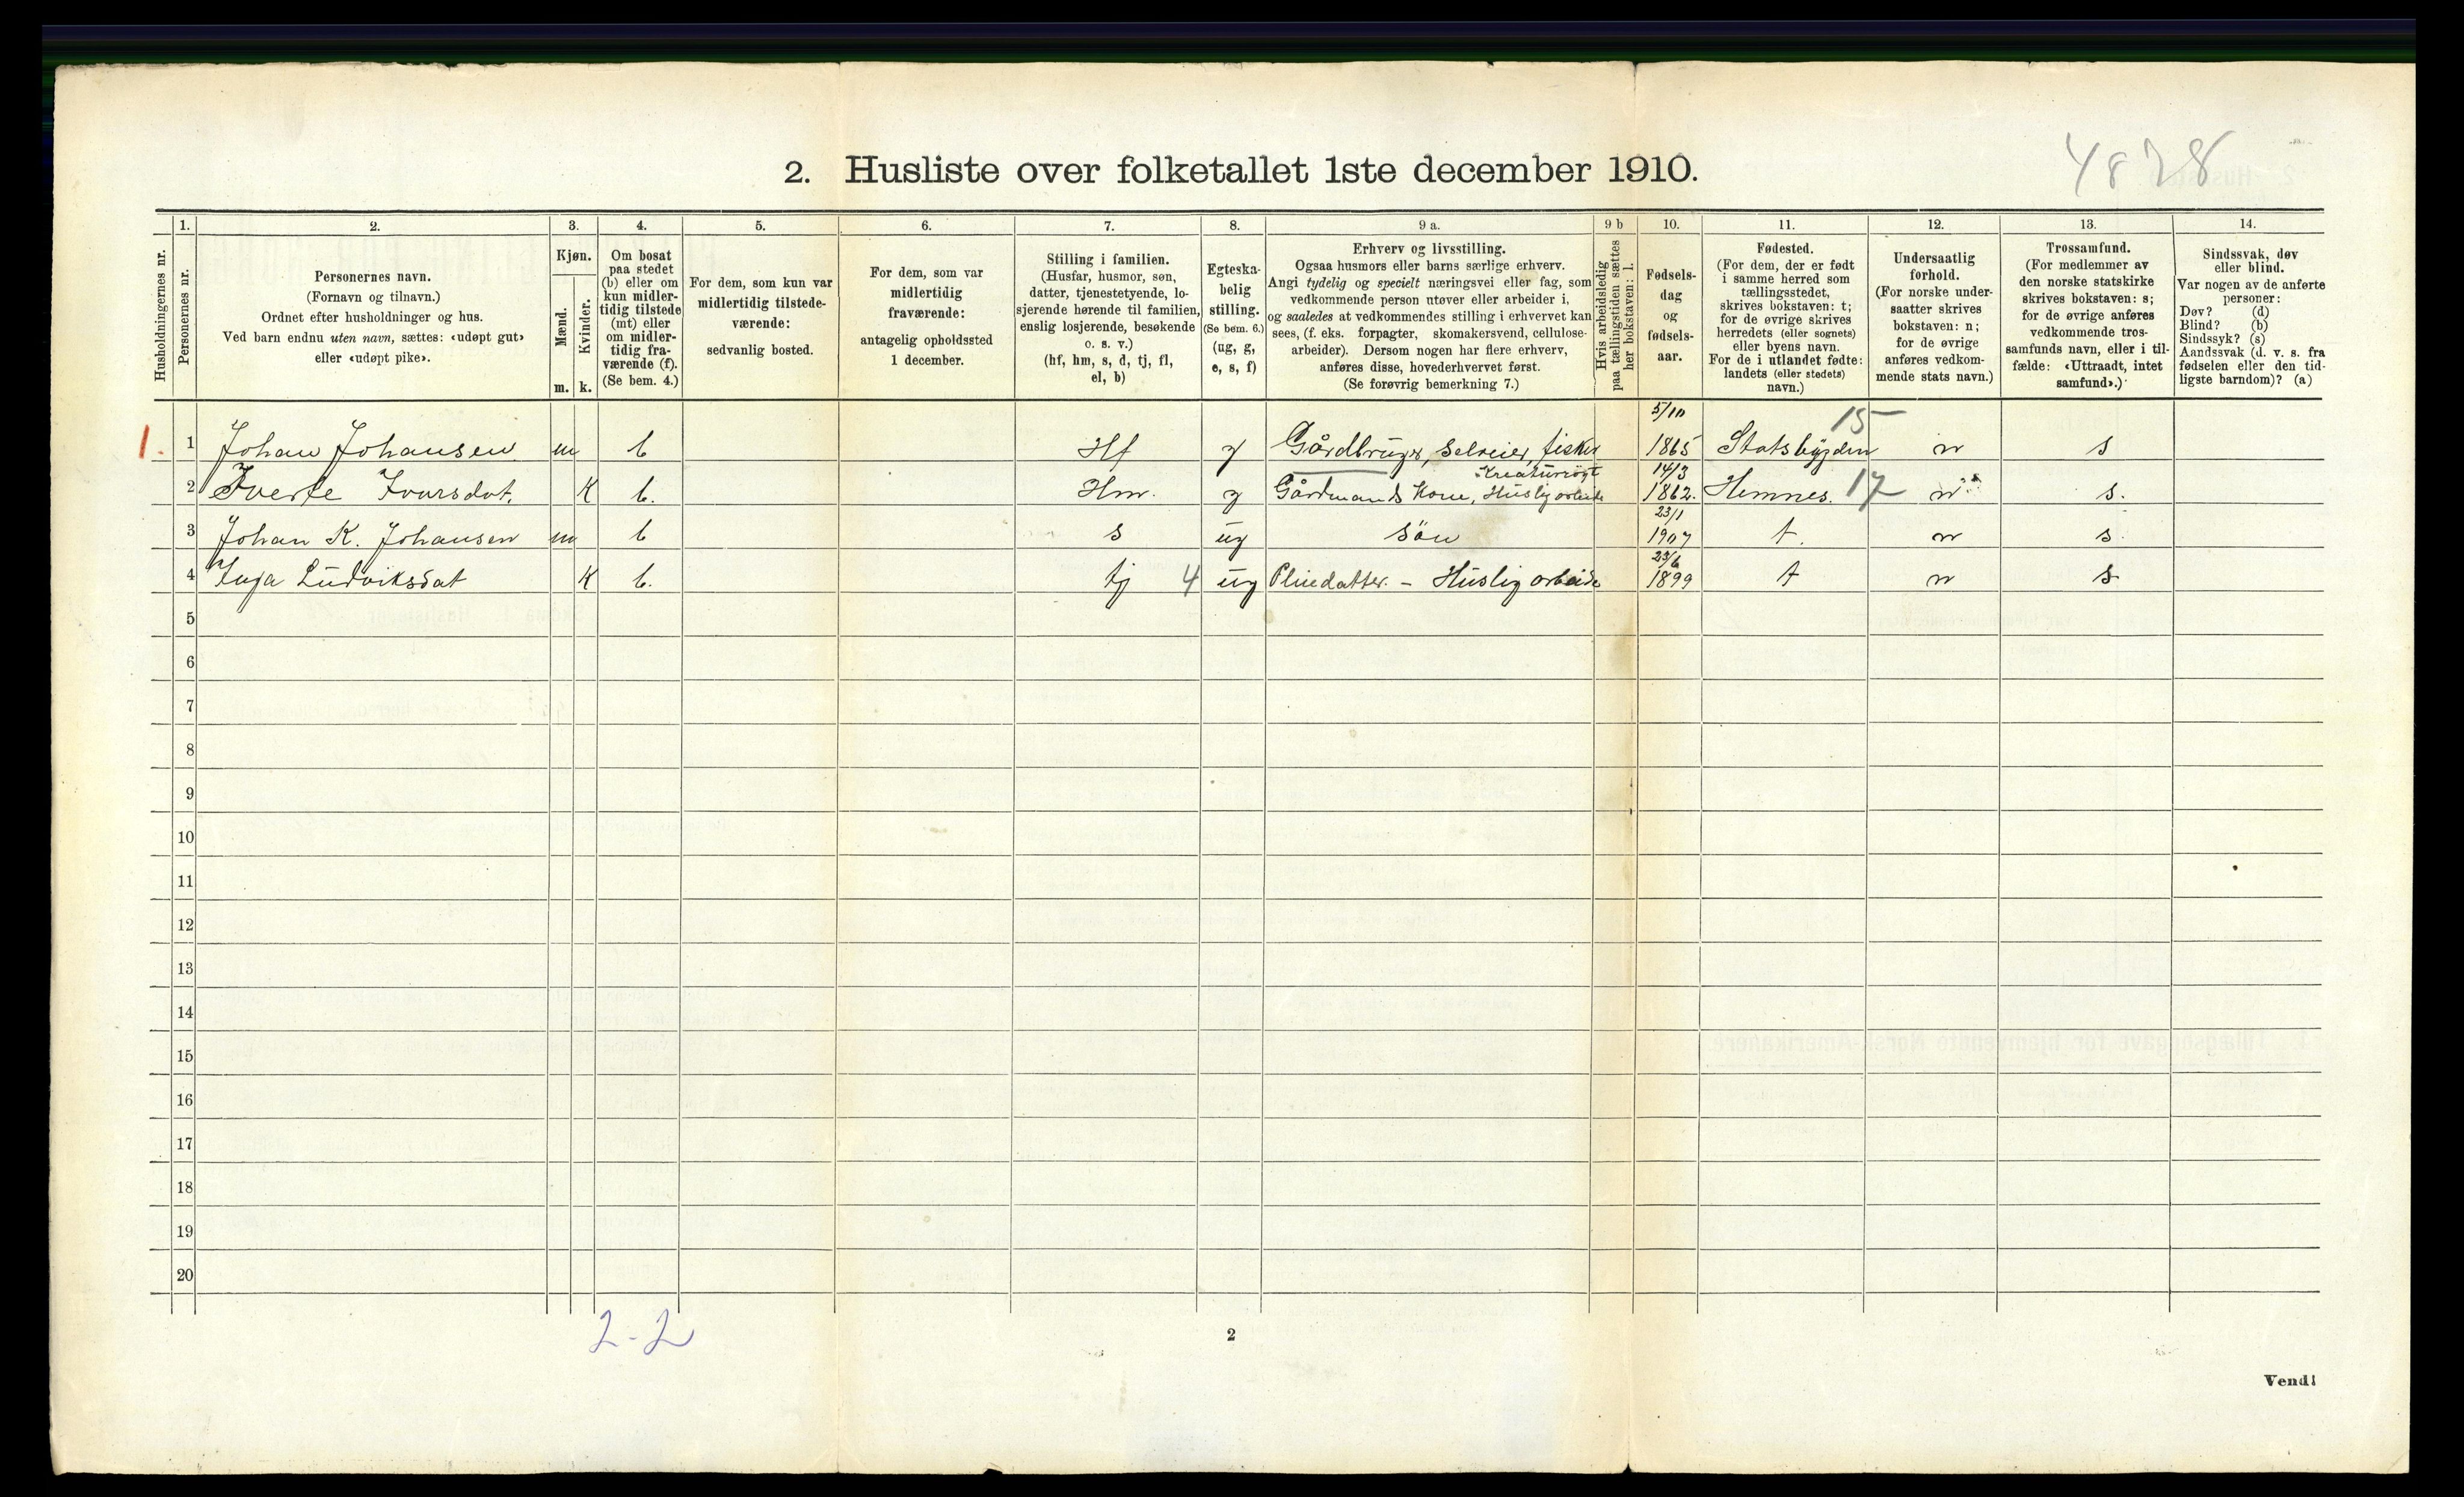 4878
2. Husliste over folketallet 1ste december 1910.
Husholdningernes nr.
1.
Personernes nr.
2.
Personernes navn.
(Fornavn og tilnavn.)
Ordnet efter husholdninger og hus.
Ved barn endnu uten navn, sættes: «udøpt gut»
eller «udøpt pike».
3.
Kjøn.
Mænd.
Kvinder.
m. k.
4.
Om bosat
paa stedet
(b) eller om
kun midler-
tidig tilstede
(mt) eller
om midler-
tidig fra-
værende (f).
(Se bem. 4.)
5.
For dem, som kun var
midlertidig tilstede-
værende:
sedvanlig bosted.
6.
For dem, som var
midlertidig
fraværende:
antagelig opholdssted
1 december.
7.
Stilling i familien.
(Husfar, husmor, søn,
datter, tjenestetyende, lo-
sjerende hørende til familien,
enslig losjerende, besøkende
o. s. v.)
(hf, hm, s, d, tj, fl,
el, b)
8.
Egteska-
belig
stilling.
(Se bem. 6.)
(ug, g,
e, s, f)
9 a.
Erhverv og livsstilling.
Ogsaa husmors eller barns særlige erhverv.
Angi tydelig og specielt næringsvei eller fag, som
vedkommende person utøver eller arbeider i,
og saaledes at vedkommendes stilling i erhvervet kan
sees, (f. eks. forpagter, skomakersvend, cellulose-
arbeider). Dersom nogen har flere erhverv,
anføres disse, hovederhvervet først.
(Se forøvrig bemerkning 7.)
9 b
Hvis arbeidsledig
paa tællingstiden sættes
her bokstaven: l.
10.
Fødsels-
dag
og
fødsels-
aar.
11.
Fødested.
(For dem, der er født
i samme herred som
tællingsstedet,
skrives bokstaven: t;
for de øvrige skrives
herredets (eller sognets)
eller byens navn.
For de i utlandet fødte:
landets (eller stedets)
navn.)
12.
Undersaatlig
forhold.
(For norske under-
saatter skrives
bokstaven: n;
for de øvrige
anføres vedkom-
mende stats navn.)
13.
Trossamfund.
(For medlemmer av
den norske statskirke
skrives bokstaven: s;
for de øvrige anføres
vedkommende tros-
samfunds navn, eller i til-
fælde: «Uttraadt, intet
samfund».)
14.
Sindssvak, døv
eller blind.
Var nogen av de anførte
personer:
Døv? (d)
Blind? (b)
Sindssyk? (s)
Aandssvak (d. v. s. fra
fødselen eller den tid-
ligste barndom)? (a)
5/10 15
1. 1 Johan Johansen m b Hf g Gårdbruger, Selveier, fisker 1865 Statsbygden n s
Kreaturrøgt 14/3
2 Iverte Ivarsdat. K b. Hm. g Gårdmands Kone, Huslig arbeide 1862. Hemnes. 17 n s.
23/1
3 Johan K. Johansen m b s ug sön 1907 t. n s.
23/6
4 Inga Ludviksdat K b. tj 4 ug Pliedatter. - Huslig arbeide 1899 t n s
5
6
7
8
9
10
11
12
13
14
15
16
17
18
19
20
2-2
2
Vend!